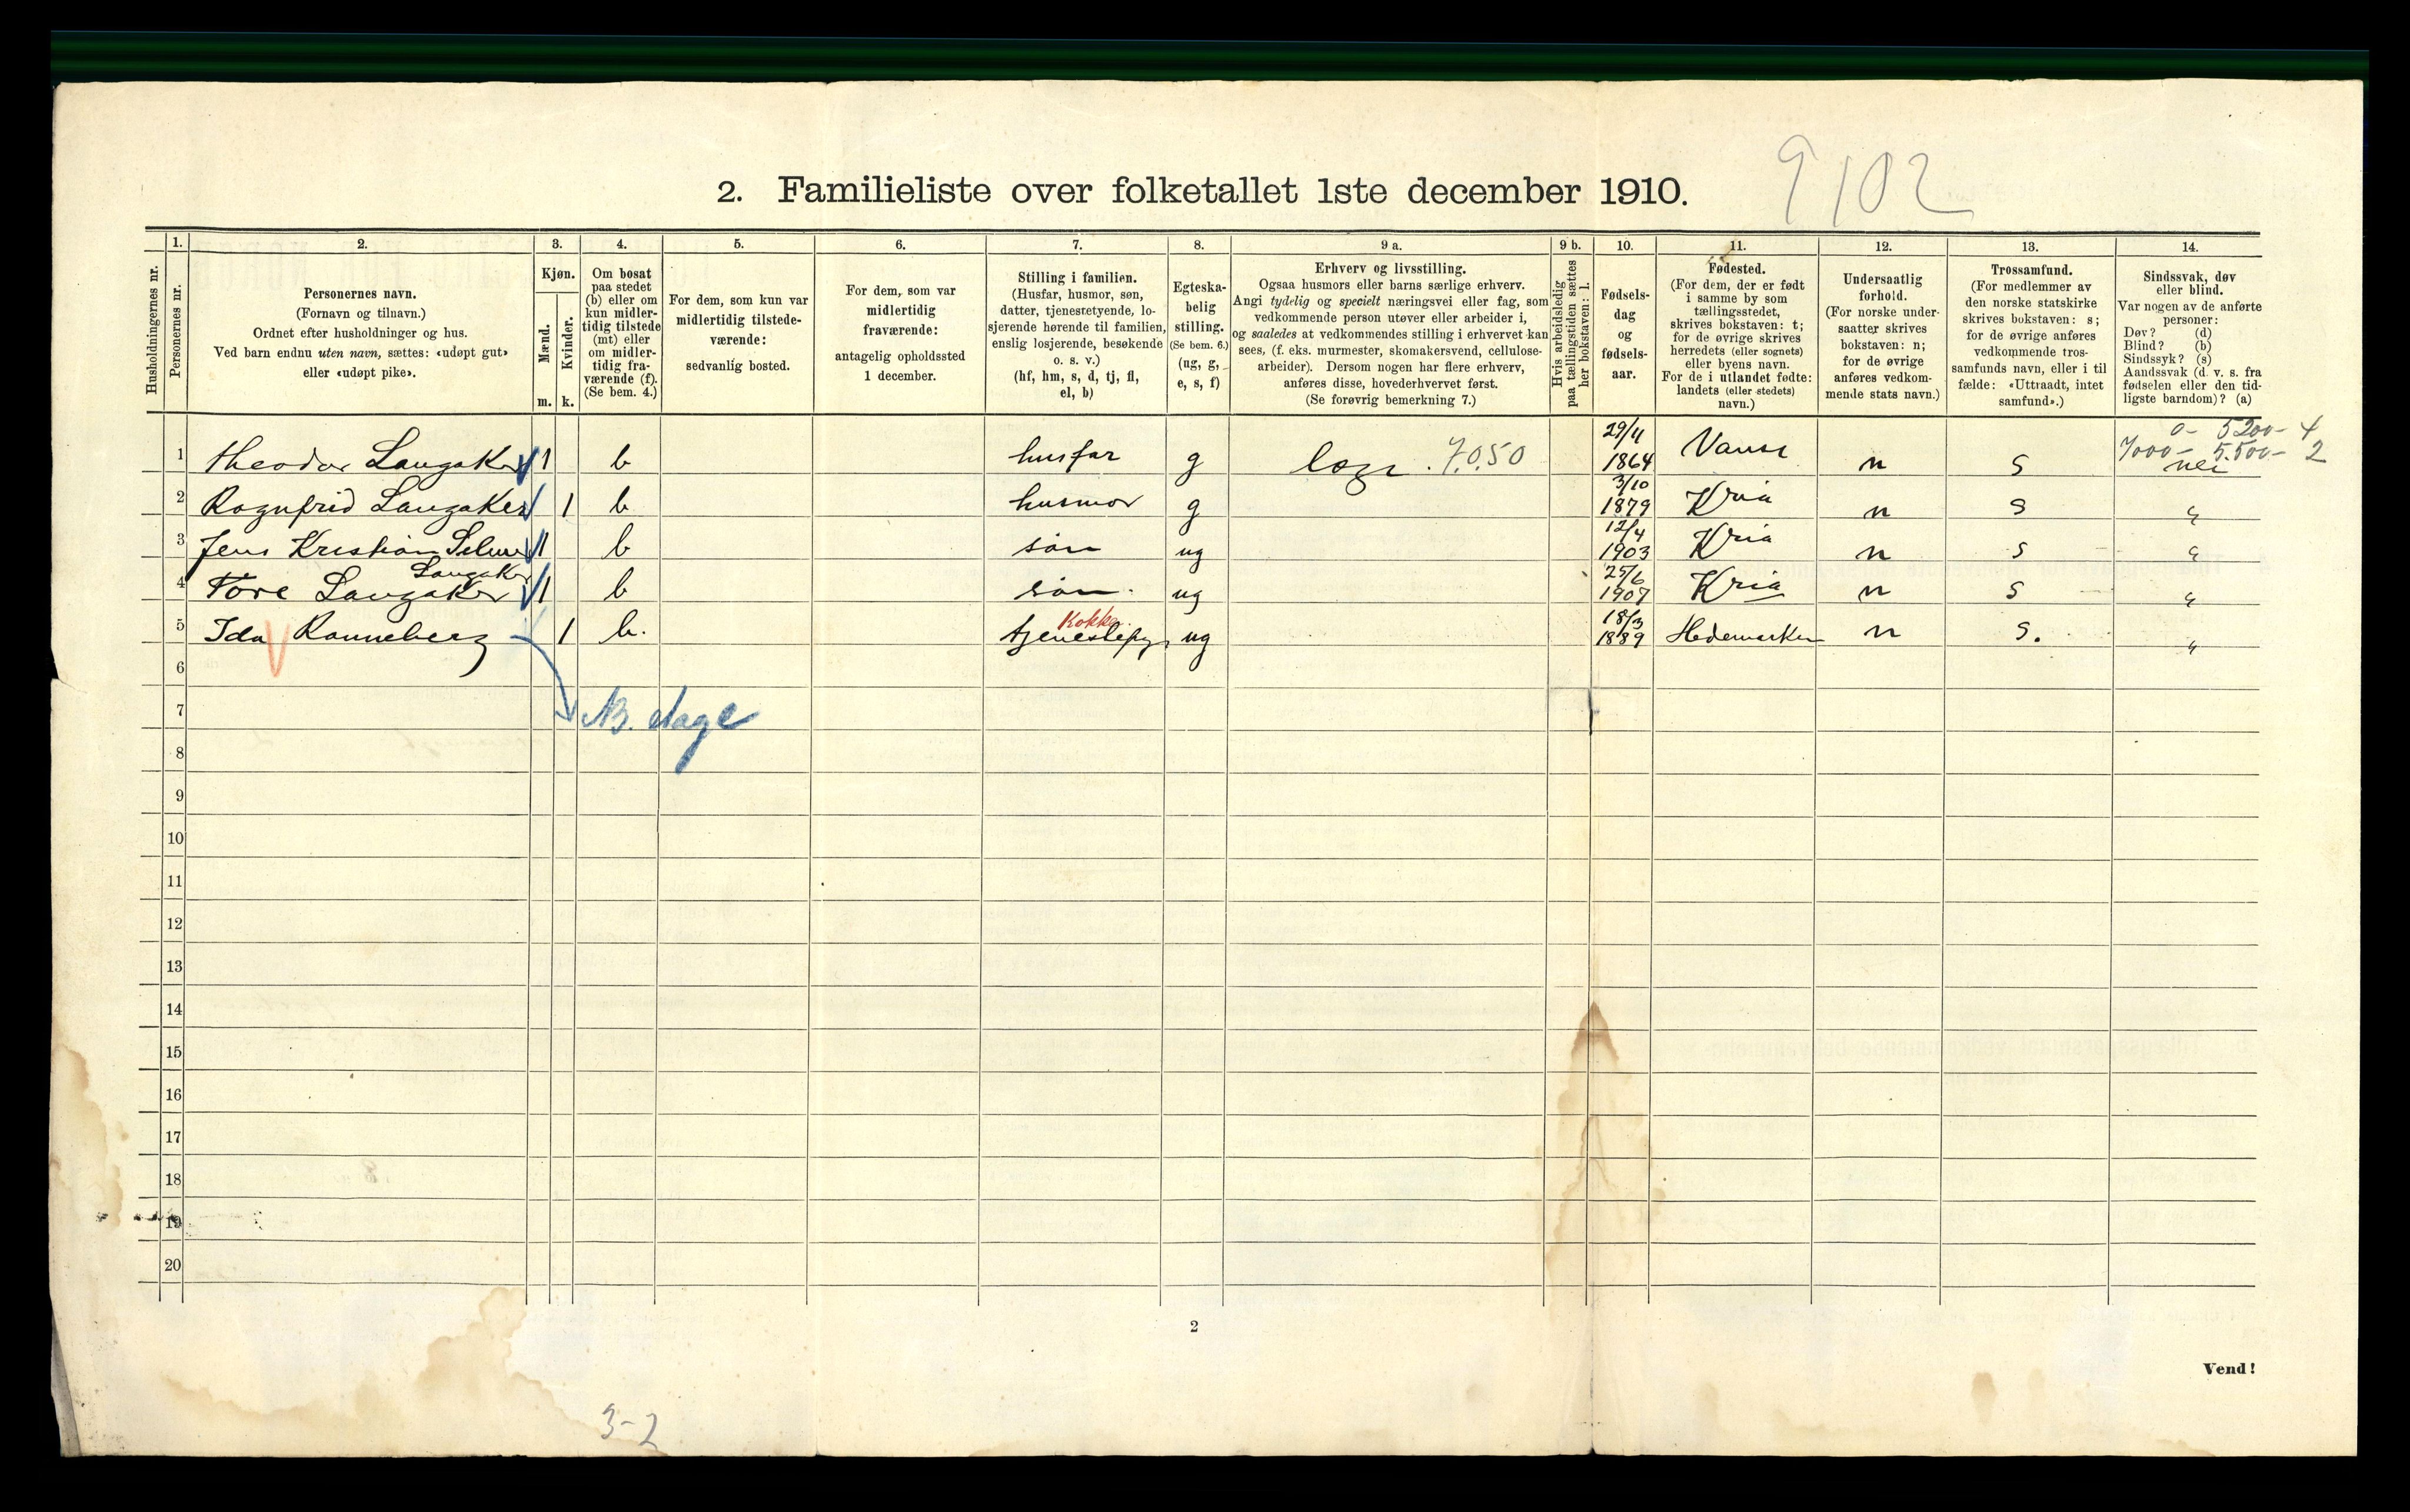 9102
2. Familieliste over folketallet 1ste december 1910.
Husholdningernes nr.
1.
Personernes nr.
2.
Personernes navn.
(Fornavn og tilnavn.)
Ordnet efter husholdninger og hus.
Ved barn endnu uten navn, sættes: «udøpt gut»
eller «udøpt pike».
3.
Kjøn.
Mænd.
Kvinder.
m. k.
4.
Om bosat
paa stedet
(b) eller om
kun midler-
tidig tilstede
(mt) eller
om midler-
tidig fra-
værende (f).
(Se bem. 4.)
5.
For dem, som kun var
midlertidig tilstede-
værende:
sedvanlig bosted.
6.
For dem, som var
midlertidig
fraværende:
antagelig opholdssted
1 december.
7.
Stilling i familien.
(Husfar, husmor, søn,
datter, tjenestetyende, lo-
sjerende hørende til familien,
enslig losjerende, besøkende
o. s. v.)
(hf, hm, s, d, tj, fl,
el, b)
8.
Egteska-
belig
stilling.
(Se bem. 6.)
(ug, g,
e, s, f)
9 a.
Erhverv og livsstilling.
Ogsaa husmors eller barns særlige erhverv.
Angi tydelig og specielt næringsvei eller fag, som
vedkommende person utøver eller arbeider i,
og saaledes at vedkommendes stilling i erhvervet kan
sees, (f. eks. murmester, skomakersvend, cellulose-
arbeider). Dersom nogen har flere erhverv,
anføres disse, hovederhvervet først.
(Se forøvrig bemerkning 7.)
9 b.
Hvis arbeidsledig
paa tællingstiden sættes
her bokstaven: l.
10.
Fødsels-
dag
og
fødsels-
aar.
11.
Fødested.
(For dem, der er født
i samme by som
tællingsstedet,
skrives bokstaven: t;
for de øvrige skrives
herredets (eller sognets)
eller byens navn.
For de i utlandet fødte:
landets (eller stedets)
navn.)
12.
Undersaatlig
forhold.
(For norske under-
saatter skrives
bokstaven: n;
for de øvrige
anføres vedkom-
mende stats navn.)
13.
Trossamfund.
(For medlemmer av
den norske statskirke
skrives bokstaven: s;
for de øvrige anføres
vedkommende tros-
samfunds navn, eller i til
fælde: «Uttraadt, intet
samfund».)
14.
Sindssvak, døv
eller blind.
Var nogen av de anførte
personer:
Døv? (d)
Blind? (b)
Sindssyk? (s)
Aandssvak (d. v. s. fra
fødselen eller den tid-
ligste barndom)? (a)
0- 5200- 4
7000- 5.500- 2
1 Theodor Langaker 1 b husfar g 7050 29/11 1864 Vanse n s nei
2 Ragnfrid Langaker 1 b husmor g 3/10 1879 Kria n s "
3 Jens Kristian Selmer Langaker 1 b søn ug 12/4 1903 Kria n s "
4 Tore Langaker 1 b søn ug 25/6 1907 Kria n s "
Kokke
5 Ida Ranneberg 1 b. tjenestepg. ug 18/3 1889 Hedemarken n s. "
6
7 NB. dage
8
9
10
11
12
13
14
15
16
17
18
19
20
2
Vend!
3-2